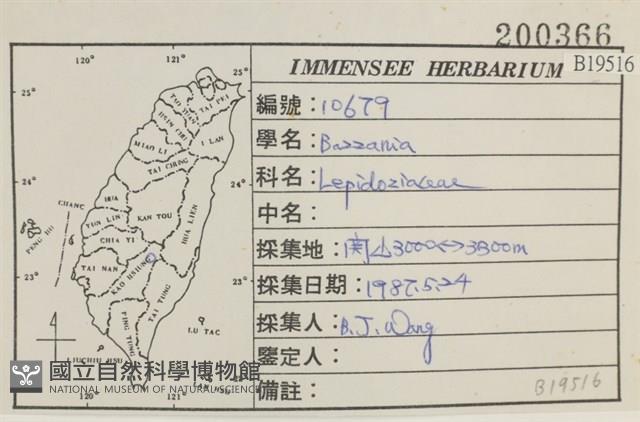 200366
B19516
IMMENSEE HERBARIUM
編號：10679
學名：Bazzania
科名：Lepidoziaceae
中名：
採集地：関山3000<->3300m
採集日期：1987.5.24
採集人：B.J.Wang
鑒定人：
備註：
B19516
120°
121°
25°
25°
TAO YUAN
TAI PEI
HSIN CHU
I LAN
MIAO LI
TAI CHUNG
24°
24°
CHANG HUA
NAN TOU
HUA LIEN
YUN LIN
PENG HU
CHIA YI
TAI NAN
KAO HSIUNG
TAI TUNG
23°
23°
PING TUNG
LU TAO
LIUCHIU HSU
120°
121°
國立自然科學博物館
NATIONAL MUSEUM OF NATURAL SCIENCE